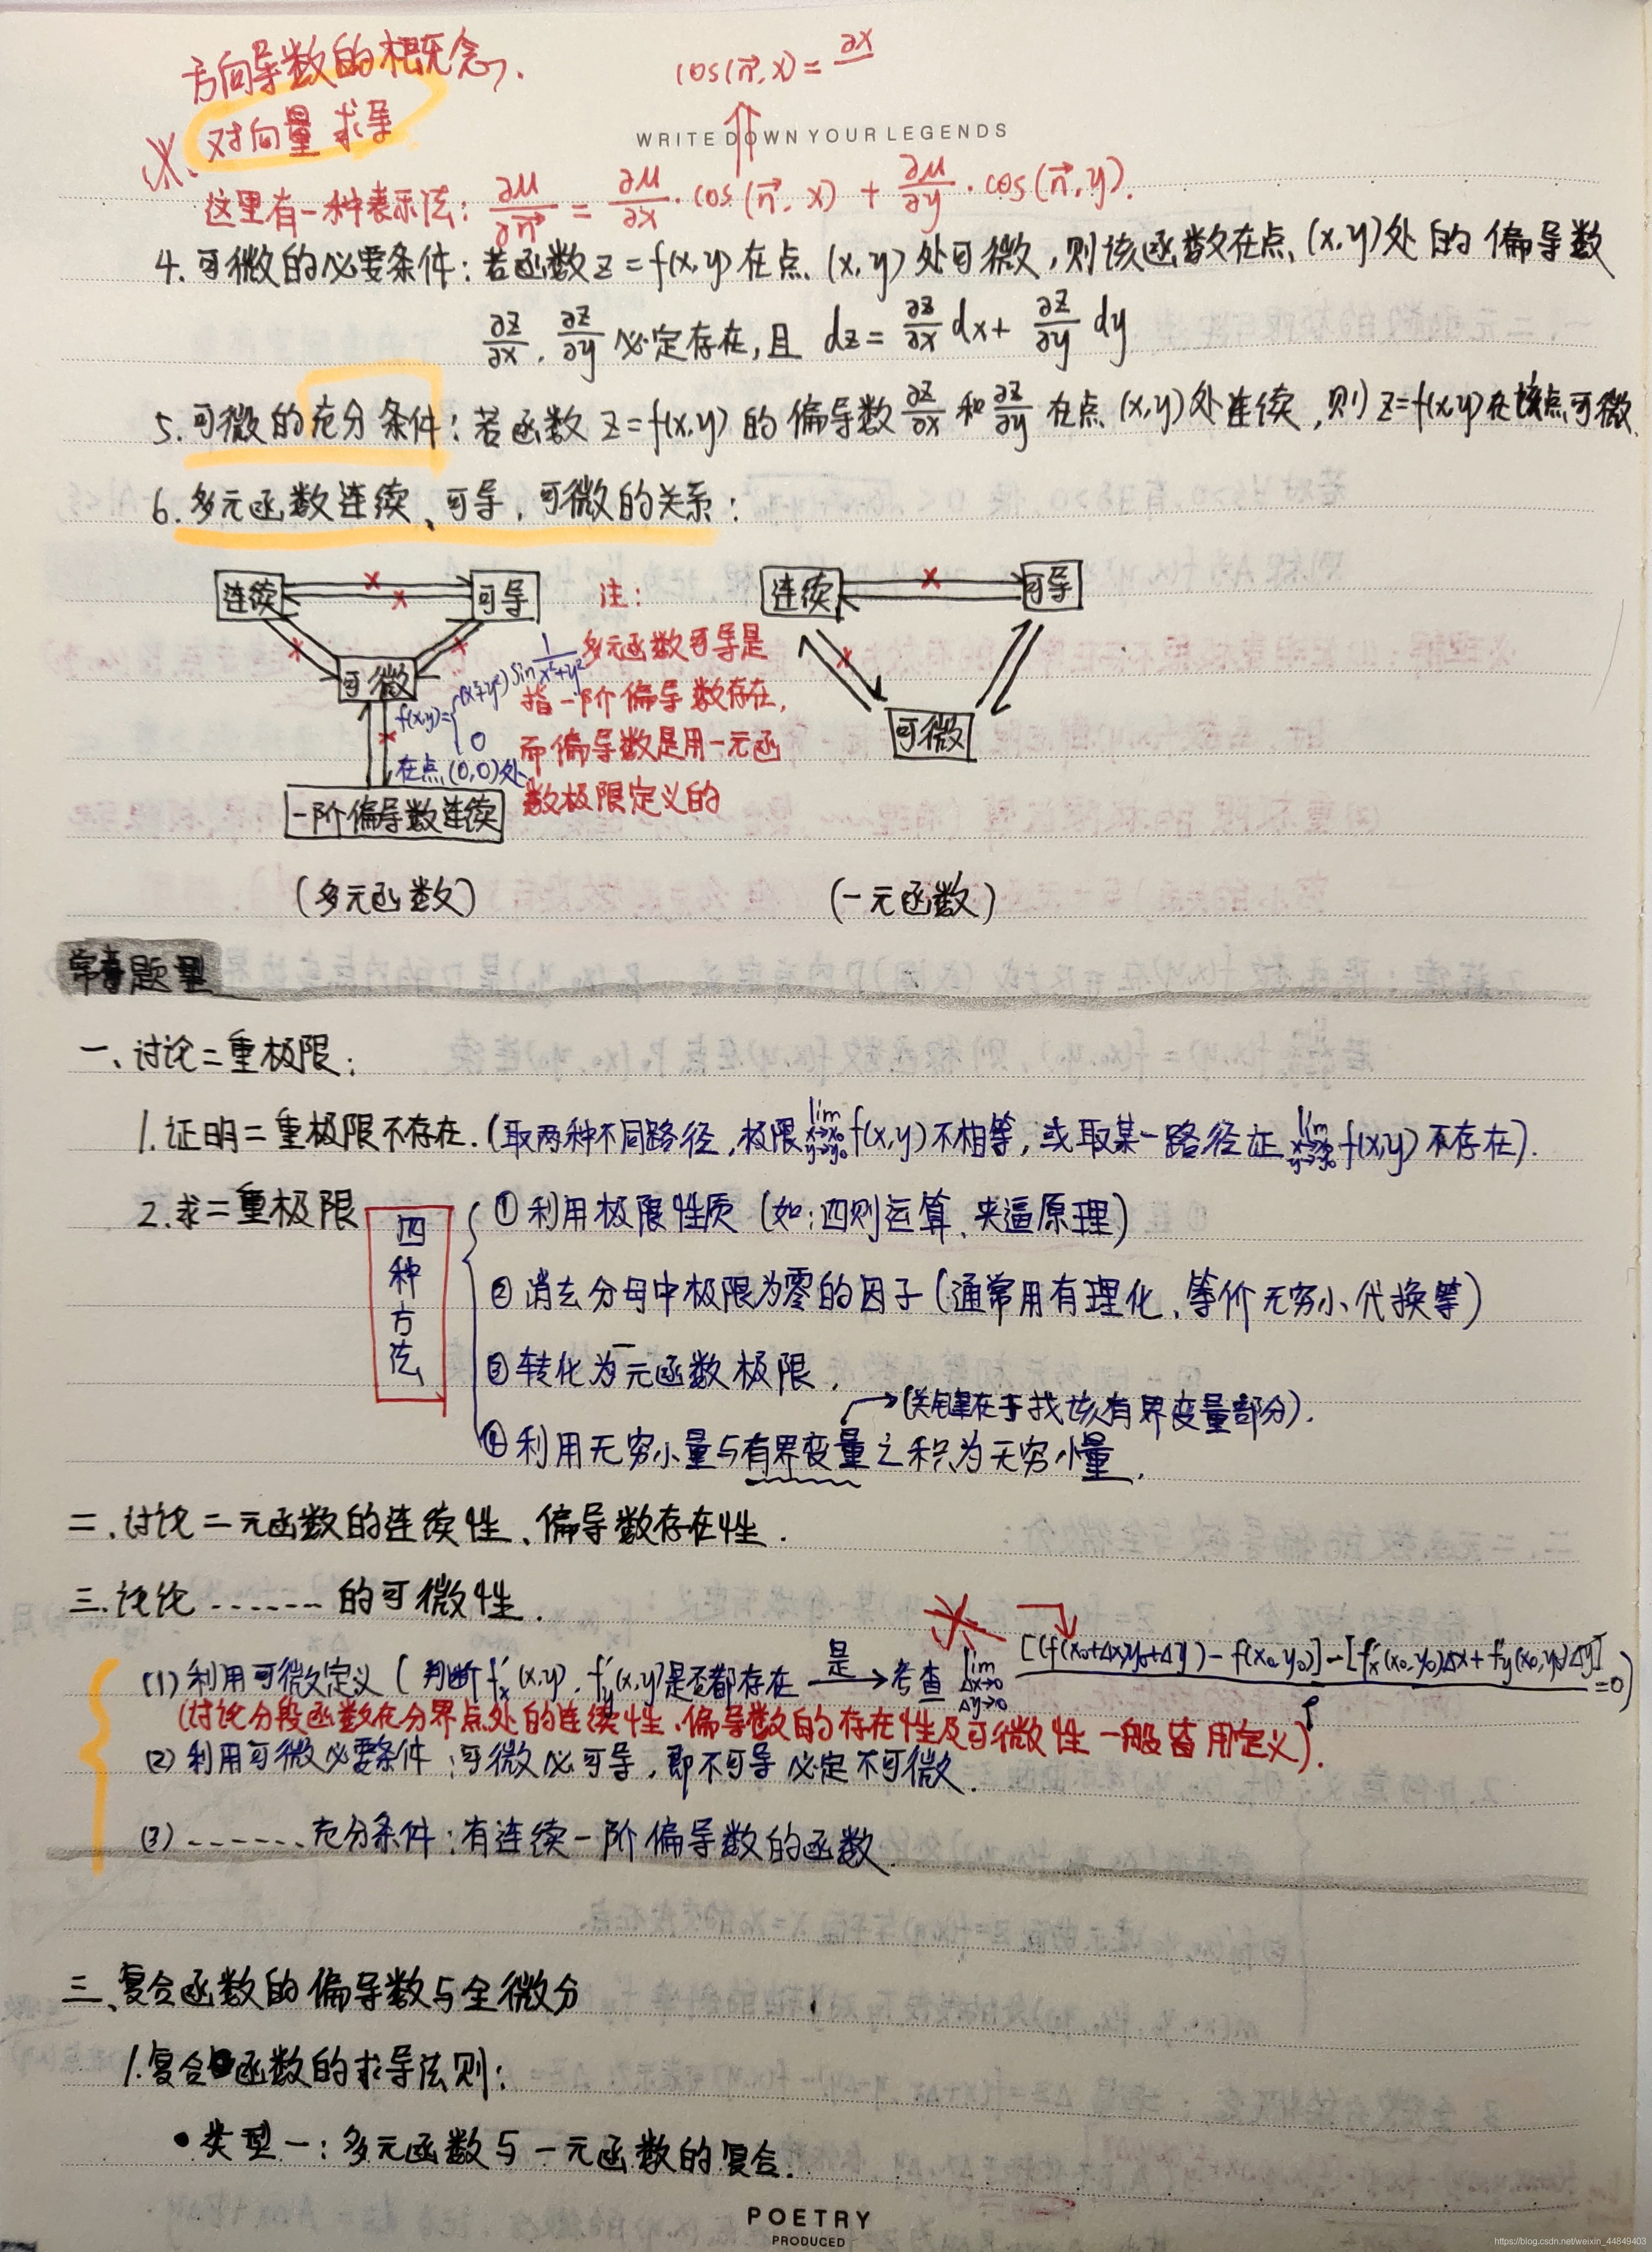 方向导数的概念.
cos(n⃗,x) = ∂x
对向量求导
WRITE DOWN YOUR LEGENDS
这里有一种表示法: ∂u/∂n⃗ = ∂u/∂x · cos(n⃗, x) + ∂u/∂y · cos(n⃗, y).
4. 可微的必要条件: 若函数 z=f(x,y) 在点 (x,y) 处可微, 则该函数在点 (x,y) 处的偏导数
∂z/∂x, ∂z/∂y 必定存在, 且 dz = ∂z/∂x dx + ∂z/∂y dy
5. 可微的充分条件: 若函数 z=f(x,y) 的偏导数 ∂z/∂x 和 ∂z/∂y 在点 (x,y) 处连续, 则 z=f(x,y) 在该点可微.
6. 多元函数连续、可导, 可微的关系:
连续 可导
可微
f(x,y)={(x²+y²) sin 1/(x²+y²)
0
在点(0,0)处
一阶偏导数连续
(多元函数)
注:
多元函数可导是
指一阶偏导数存在,
而偏导数是用一元函
数极限定义的
连续 可导
可微
(一元函数)
常考题型
一、讨论二重极限:
1. 证明二重极限不存在. (取两种不同路径, 极限 lim x→x₀ y→y₀ f(x,y) 不相等, 或取某一路径证 lim x→x₀ y→y₀ f(x,y) 不存在).
2. 求二重极限
四种方法
① 利用极限性质 (如: 四则运算、夹逼原理)
② 消去分母中极限为零的因子 (通常用有理化、等价无穷小代换等)
③ 转化为一元函数极限.
→(关键在于找该有界变量部分).
④ 利用无穷小量与有界变量之积为无穷小量.
二、讨论二元函数的连续性、偏导数存在性.
三. 讨论 ------- 的可微性.
(1) 利用可微定义 ( 判断 f'x(x,y), f'y(x,y) 是否都存在 是→ 考查 lim Δx→0 Δy→0 [(f(x₀+Δx,y₀+Δy) - f(x₀,y₀)] - [f'x(x₀,y₀)Δx + f'y(x₀,y₀)Δy] / ρ =0)
(讨论分段函数在分界点处的连续性、偏导数的存在性及可微性一般皆用定义).
(2) 利用可微必要条件: 可微必可导, 即不可导必定不可微.
(3) ------- 充分条件: 有连续一阶偏导数的函数.
三、复合函数的偏导数与全微分
1. 复合函数的求导法则:
• 类型一: 多元函数与一元函数的复合.
POETRY
PRODUCED
https://blog.csdn.net/weixin_44849403